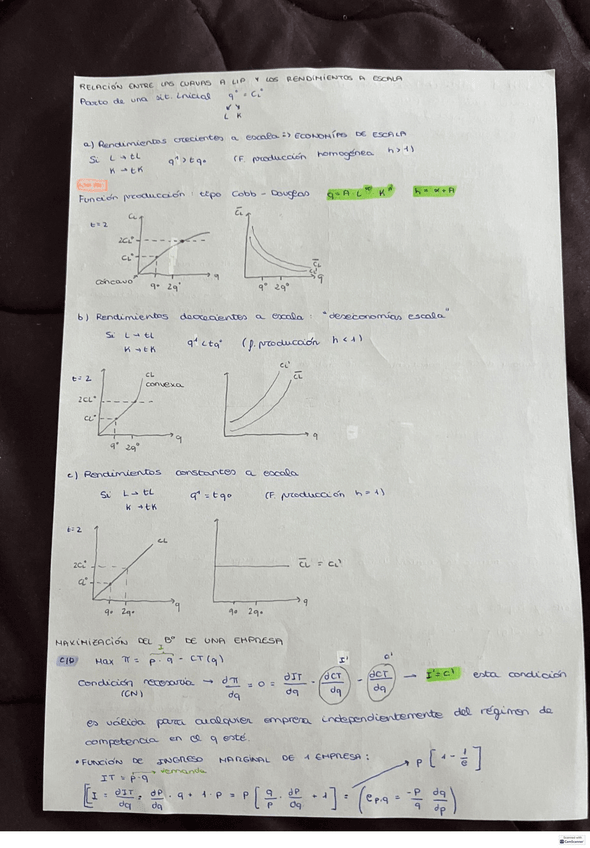 RELACIÓN ENTRE LAS CURVAS A L/P Y LOS RENDIMIENTOS A ESCALA
Parto de una sit. inicial q° = CL°
L K
a) Rendimientos crecientes a escala :) ECONOMÍAS DE ESCALA
Si L → tL q¹ > tq° (F. producción homogénea h>1)
K → tK
Función producción: tipo Cobb-Douglas q = A · L^α K^β
t=2
CL
2CL°
CL°
cóncavo
q° 2q° q
CL
CL
CL'
q° 2q° q
b) Rendimientos decrecientes a escala: "deseconomías escala"
Si L → tL q¹ < tq° (f. producción h<1)
K → tK
t=2
CL
convexa
2CL°
CL°
q° 2q° q
CL'
CL
q
c) Rendimientos constantes a escala
Si L → tL q¹ = tq° (F. producción h=1)
K → tK
t=2
CL
2CL°
q° 2q° q
CL = CL'
q° 2q° q
MAXIMIZACIÓN DEL B° DE UNA EMPRESA
I
C/P Max π = p·q - CT(q)
I' C'
Condición necesaria → dπ/dq = 0 = dIT/dq - dCT/dq - dCT/dq → I'=C' esta condición
(CN)
es válida para cualquier empresa independientemente del régimen de
competencia en el q esté.
• FUNCIÓN DE INGRESO MARGINAL DE 1 EMPRESA: p [1 - 1/e]
IT = p·q
[I = dIT/dq = dP/dq · q + 1·P = P [q/P · dP/dq + 1] = (e p,q = -P/q dq/dp)
CamScanner